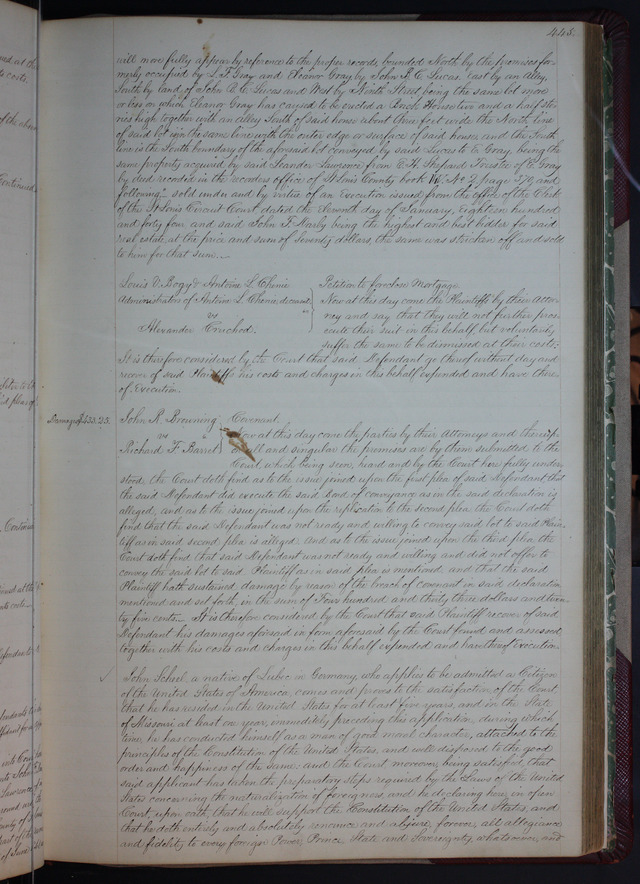 445.
will more fully appear by reference to the proper records, bounded North by the premises for-
merly occupied by L. F. Gray and Eleanor Gray by John B. C. Lucas. East by an Alley
South by land of John B. C. Lucas and West by Ninth Street, being the same lot more
or less on which Eleanor Gray has caused to be erected a Brick House two and a half sto-
ries high together with an alley South of said house about three feet wide the North line
of said lot upon the same line with the outer edge or surface of said house, and the South
line is the South boundary of the aforesaid lot conveyed by said Lucas to E. Gray, being the
same property acquired by said Lawrence from E. H. Shepard Trustee of E. Gray
by deed recorded in the recorders office of St Louis County book No 2. page and
following" sold under and by virtue of an Execution issued from the office of the Clerk
of the St Louis Circuit Court dated the Eleventh day of January, Eighteen hundred
and forty four, and said John F. Darby being the highest and best bidder for said
real estate at the price and sum of Seventy dollars, the same was stricken off and sold
to him for that sum.
Louis V. Bogy & Antoine L. Chenie
Administrators of Antoine L. Chenie deceased
vs
Alexander
Petition to foreclose Mortgage.
Now at this day come the Plaintiffs by their Attor-
ney and say that they will not further prose-
cute their suit in this behalf but voluntarily
suffer the same to be dismissed at their costs.
It is therefore considered by the Court that said Defendant go thereof without day and
recover of said Plaintiffs his costs and charges in this behalf expended and have there-
of Execution.
Damages $433.25.
John R. Browning
vs
Richard F. Barret
Covenant.
Now at this day come the parties by their Attorneys and thereup-
on all and singular the premises are by them submitted to the
Court, which being seen, heard and by the Court here fully under-
stood, the Court doth find as to the issue joined upon the first plea of said Defendant that
the said Defendant did execute the said Bond of conveyance as in the said declaration is
alleged, and as to the issue joined upon the replication to the second plea the Court doth
find that the said Defendant was not ready and willing to convey said lot to said Plain-
tiff as in said second plea is alleged. And as to the issue joined upon the third plea the
Court doth find that said Defendant was not ready and willing and did not offer to
convey the said lot to said Plaintiff as in said plea is mentioned, and that the said
Plaintiff hath sustained damage by reason of the breach of covenant in said declaration
mentioned and set forth, in the sum of Four hundred and thirty three dollars and twen-
ty five cents. It is therefore considered by the Court that said Plaintiff recover of said
Defendant his damages aforesaid in form aforesaid by the Court found and assessed
together with his costs and charges in this behalf expended and have thereof execution.
John Scheel a native of Lubec in Germany, who applies to be admitted a Citizen
of the United States of America, comes and proves to the satisfaction of the Court,
that he has resided in the United States for at least five years, and in the State
of Missouri at least one year, immediately preceding this application, during which
time he has conducted himself as a man of good moral character, attached to the
principles of the Constitution of the United States, and well disposed to the good
order and happiness of the same: and the Court moreover, being satisfied, that
said applicant has taken the preparatory steps required by the Laws of the United
States concerning the naturalization of foreigners, and he declaring here, in open
Court, upon oath, that he will support the Constitution of the United States, and
that he doth entirely and absolutely renounce and abjure, forever, all allegiance
and fidelity to every foreign Power, Prince State and Sovereignty, whatsoever, and